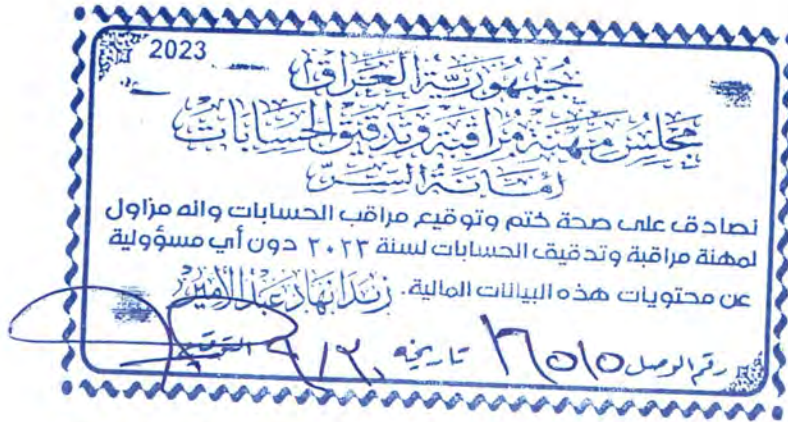 2023
جمهورية العراق
مجلس مهنة مراقبة وتدقيق الحسابات
أمانة السر
نصادق على صحة ختم وتوقيع مراقب الحسابات وانه مزاول
لمهنة مراقبة وتدقيق الحسابات لسنة ٢٠٢٣ دون أي مسؤولية
عن محتويات هذه البيانات المالية.
رقم الوصل تاريخه التوقيع